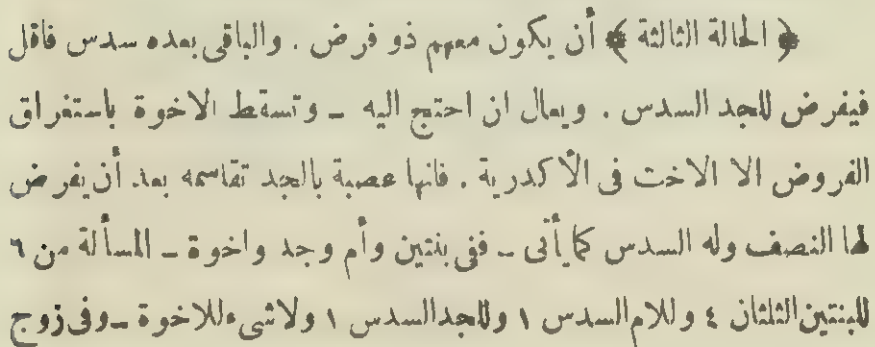 ﴿ الحالة الثالثة ﴾ أن يكون معهم ذو فرض . والباقى بعده سدس فاقل
فيفرض للجد السدس . ويعال ان احتج اليه ـ وتسقط الاخوة باستغراق
الفروض الا الاخت فى الأكدرية . فانها عصبة بالجد تقاسمه بعد أن يفرض
لها النصف وله السدس كما يأتى ـ ففى بنتين وأم وجد واخوة ـ المسألة من ٦
للبنتين الثلثان ٤ وللام السدس ١ وللجد السدس ١ ولا شىء للاخوة ـ وفى زوج